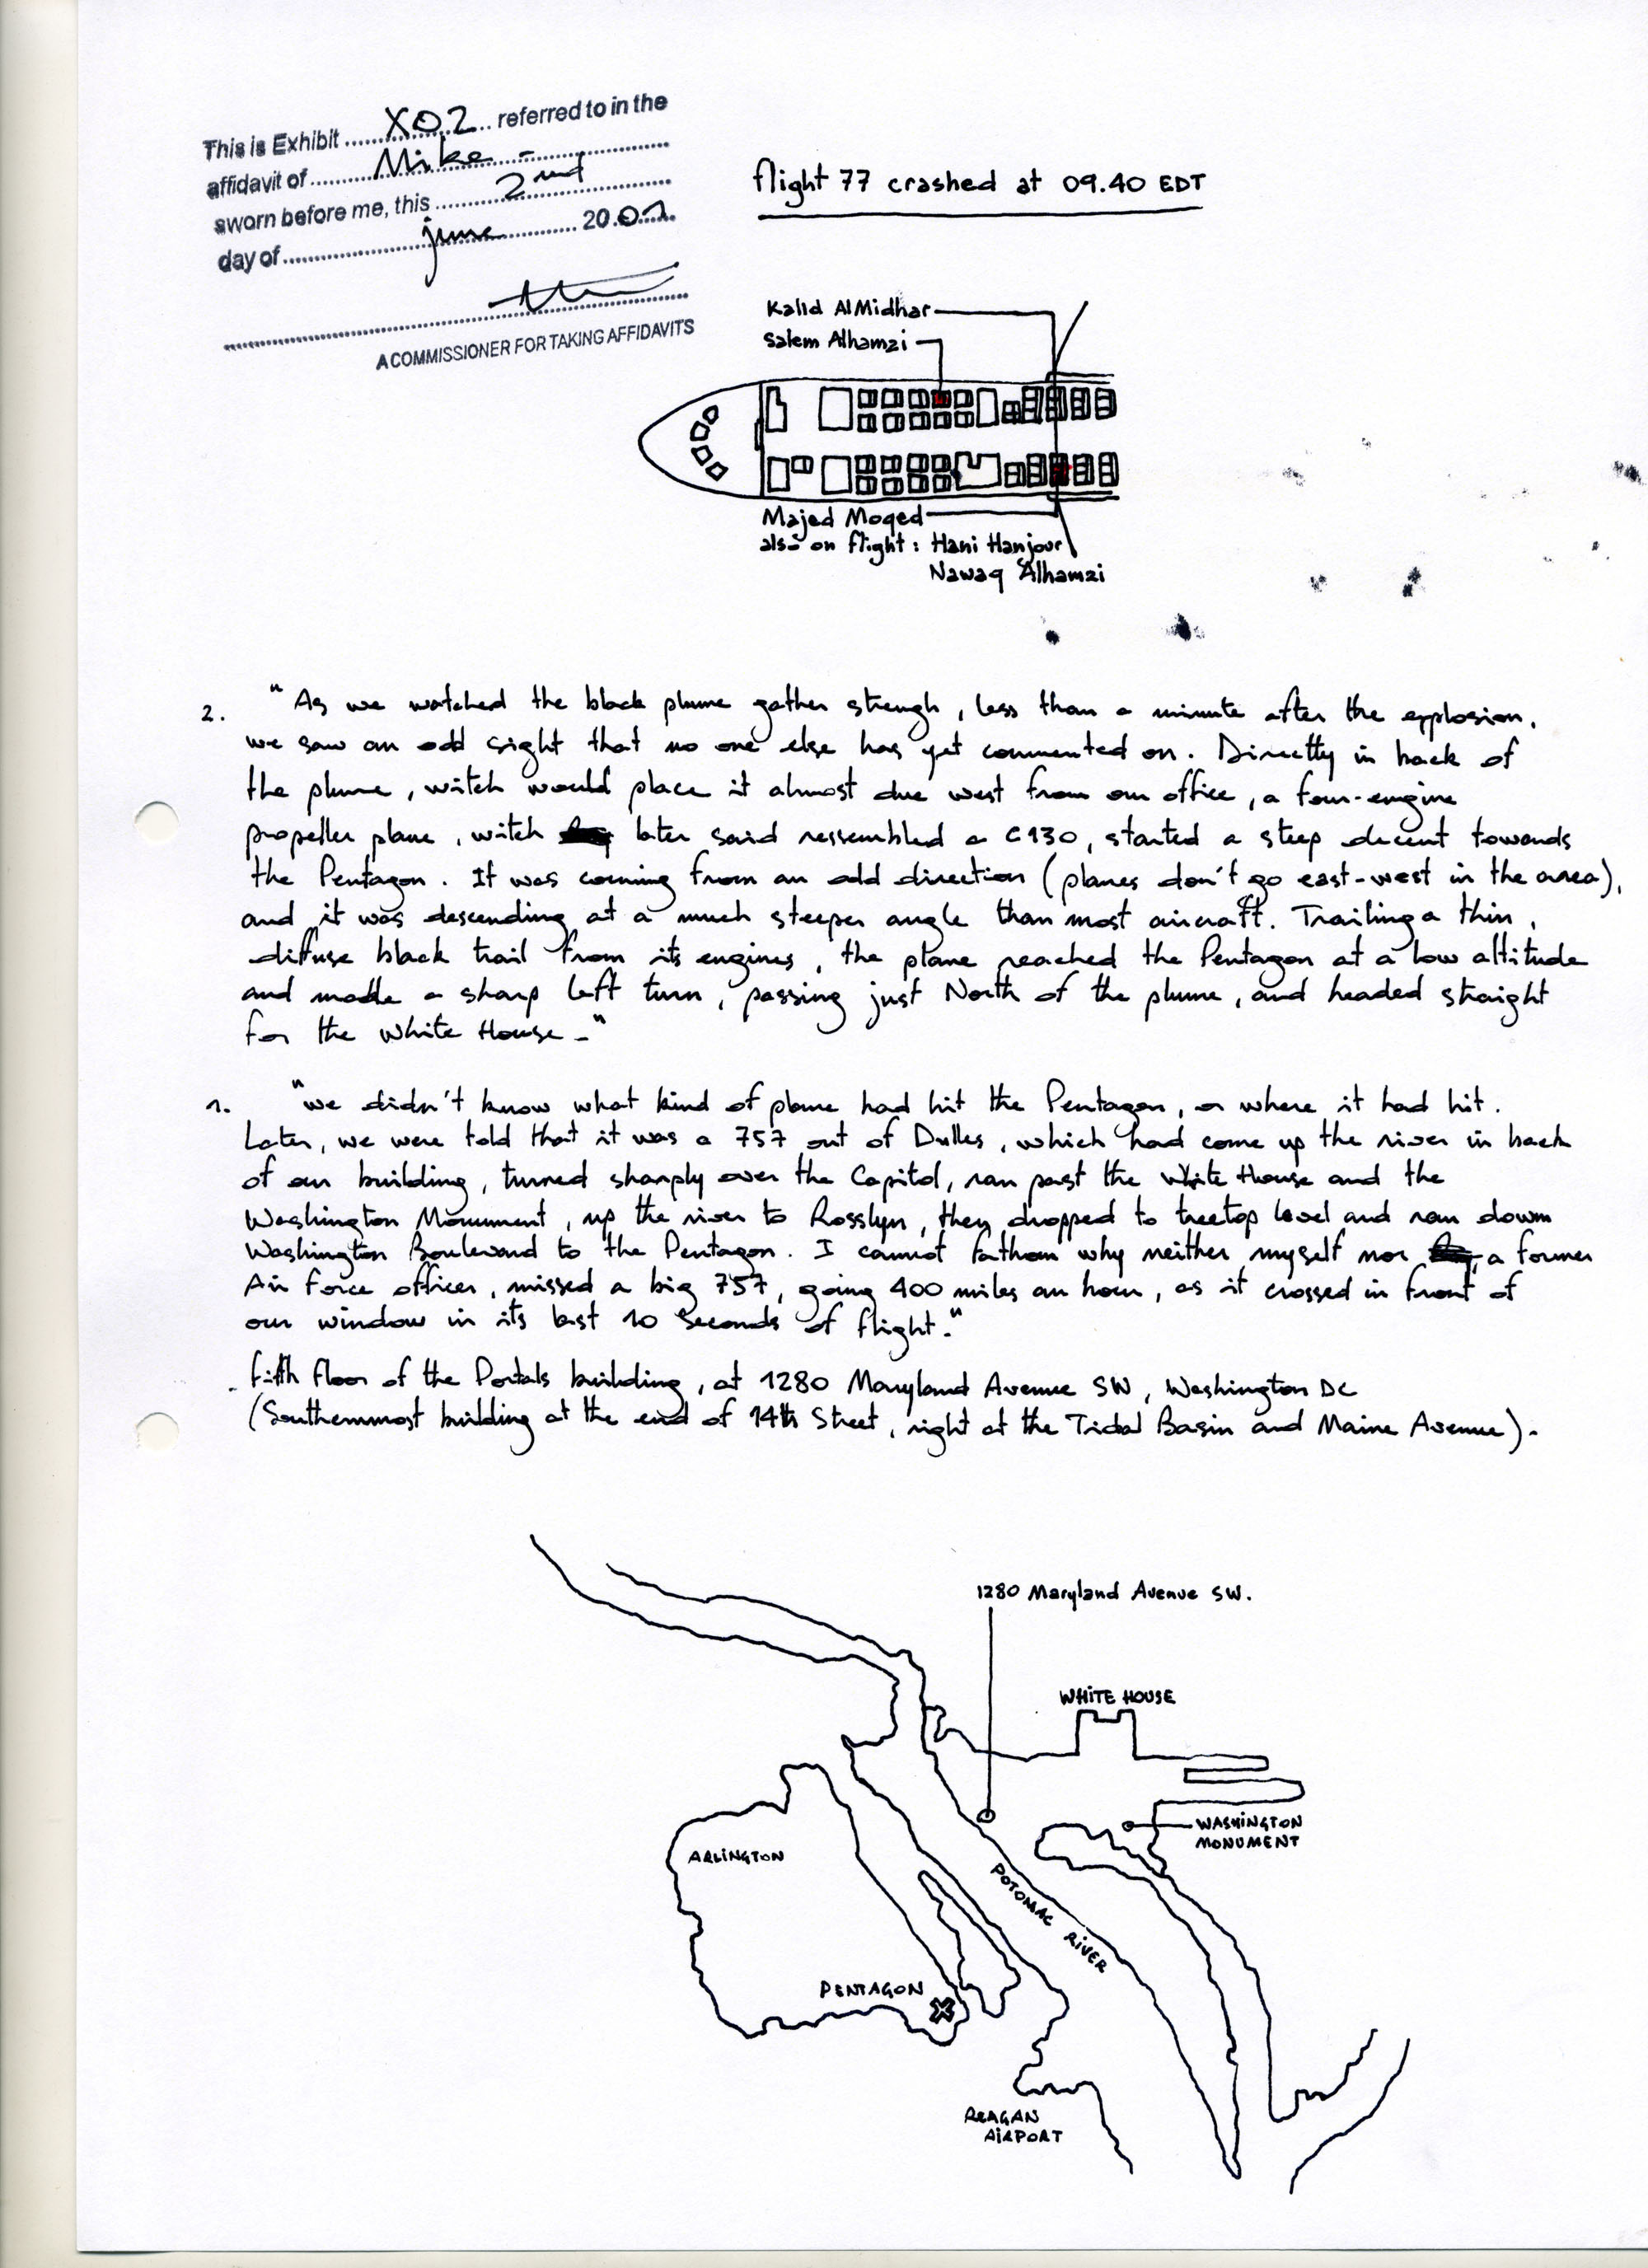 This is Exhibit X02 referred to in the
affidavit of Mike -
sworn before me, this 2nd
day of june 2001
A COMMISSIONER FOR TAKING AFFIDAVITS
flight 77 crashed at 09.40 EDT
Kalid AlMidhar
Salem Alhamzi
Majed Moqed
also on flight : Hani Hanjour
Nawaq Alhamzi
2. "As we watched the black plume gather strengh, less than a minute after the explosion,
we saw an odd sight that no one else has yet commented on. Directly in back of
the plume, witch would place it almost due west from our office, a four-engine
propeller plane, witch later said ressembled a C130, started a steep decent towards
the Pentagon. It was coming from an odd direction (planes don't go east-west in the area),
and it was descending at a much steeper angle than most aircraft. Trailing a thin,
diffuse black trail from its engines, the plane reached the Pentagon at a low altitude
and made a sharp left turn, passing just North of the plume, and headed straight
for the White House -"
1. "we didn't know what kind of plane had hit the Pentagon, or where it had hit.
Later, we were told that it was a 757 out of Dulles, which had come up the river in back
of our building, turned sharply over the Capitol, ran past the White House and the
Washington Monument, up the river to Rosslyn, then dropped to treetop level and ran down
Washington Boulevard to the Pentagon. I cannot fathom why neither myself nor a former
Air Force officer, missed a big 757, going 400 miles an hour, as it crossed in front of
our window in its last 10 seconds of flight."
. fifth floor of the Portals building, at 1280 Maryland Avenue SW, Washington DC
(Southernmost building at the end of 14th Street, right at the Tidal Basin and Maine Avenue).
1280 Maryland Avenue SW.
WHITE HOUSE
WASHINGTON
MONUMENT
ARLINGTON
POTOMAC RIVER
PENTAGON
REAGAN
AIRPORT